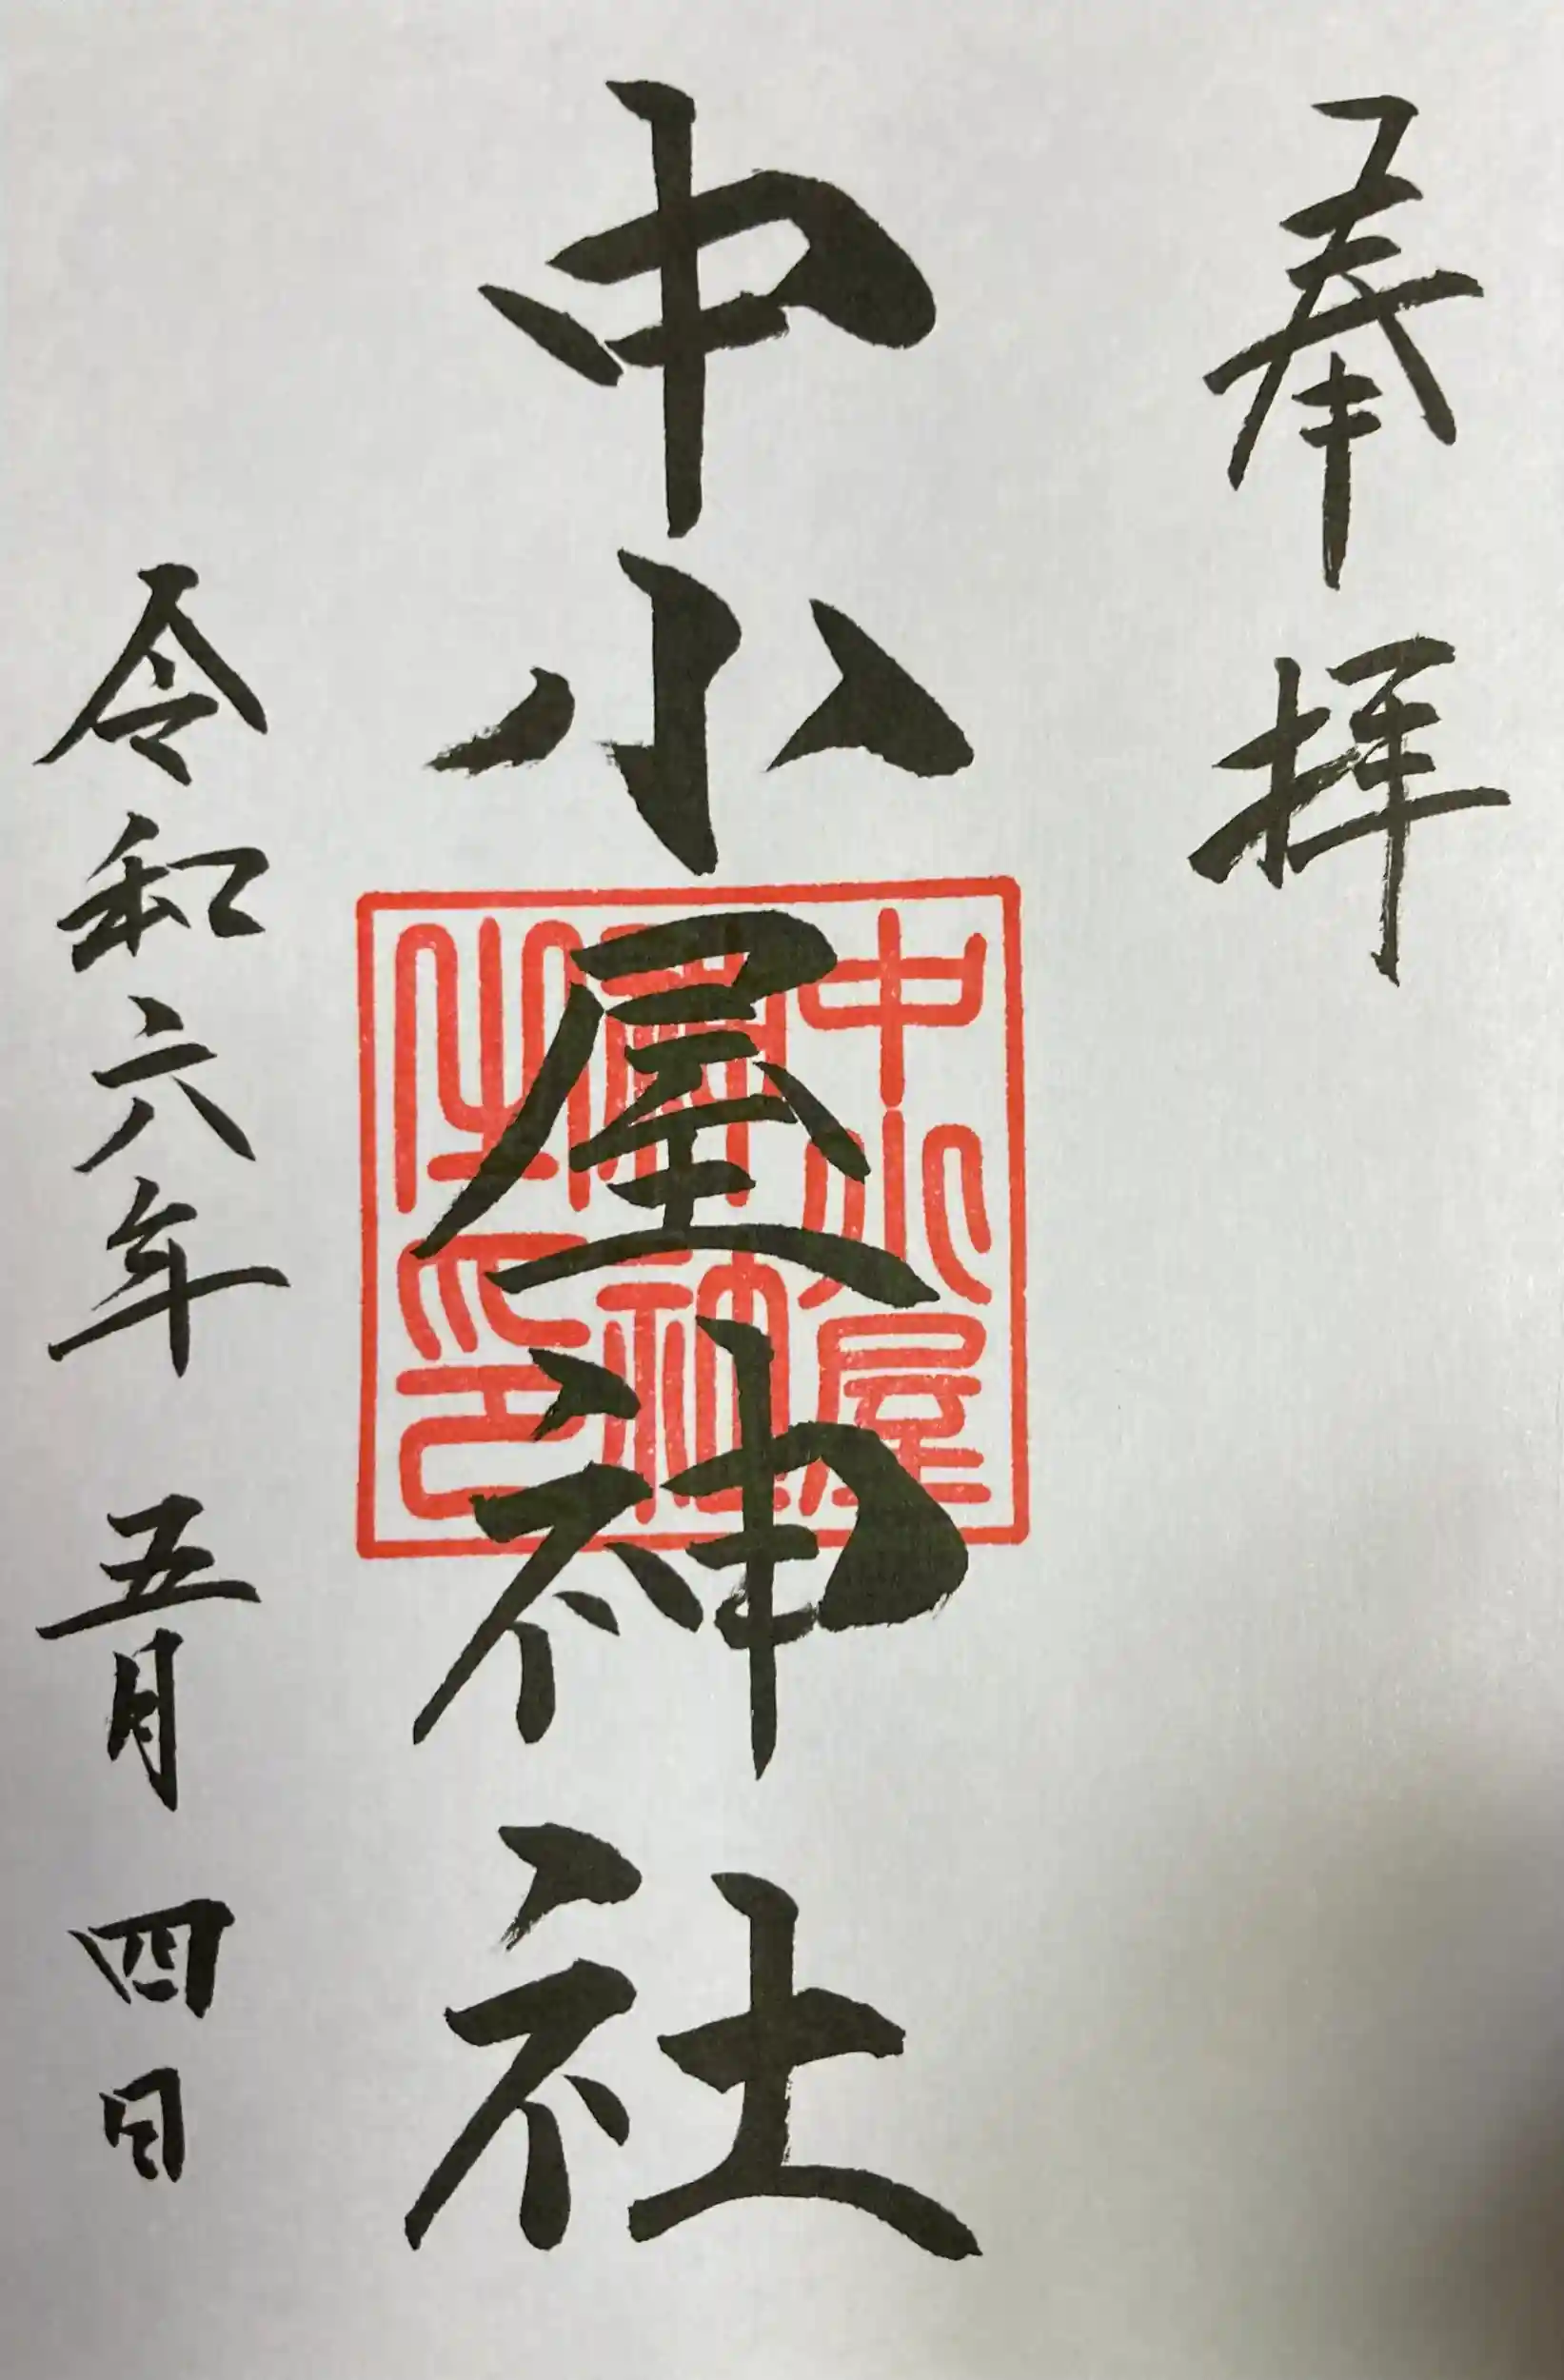 奉拝
中小屋神社
令和六年 五月 四日
中小屋
之印